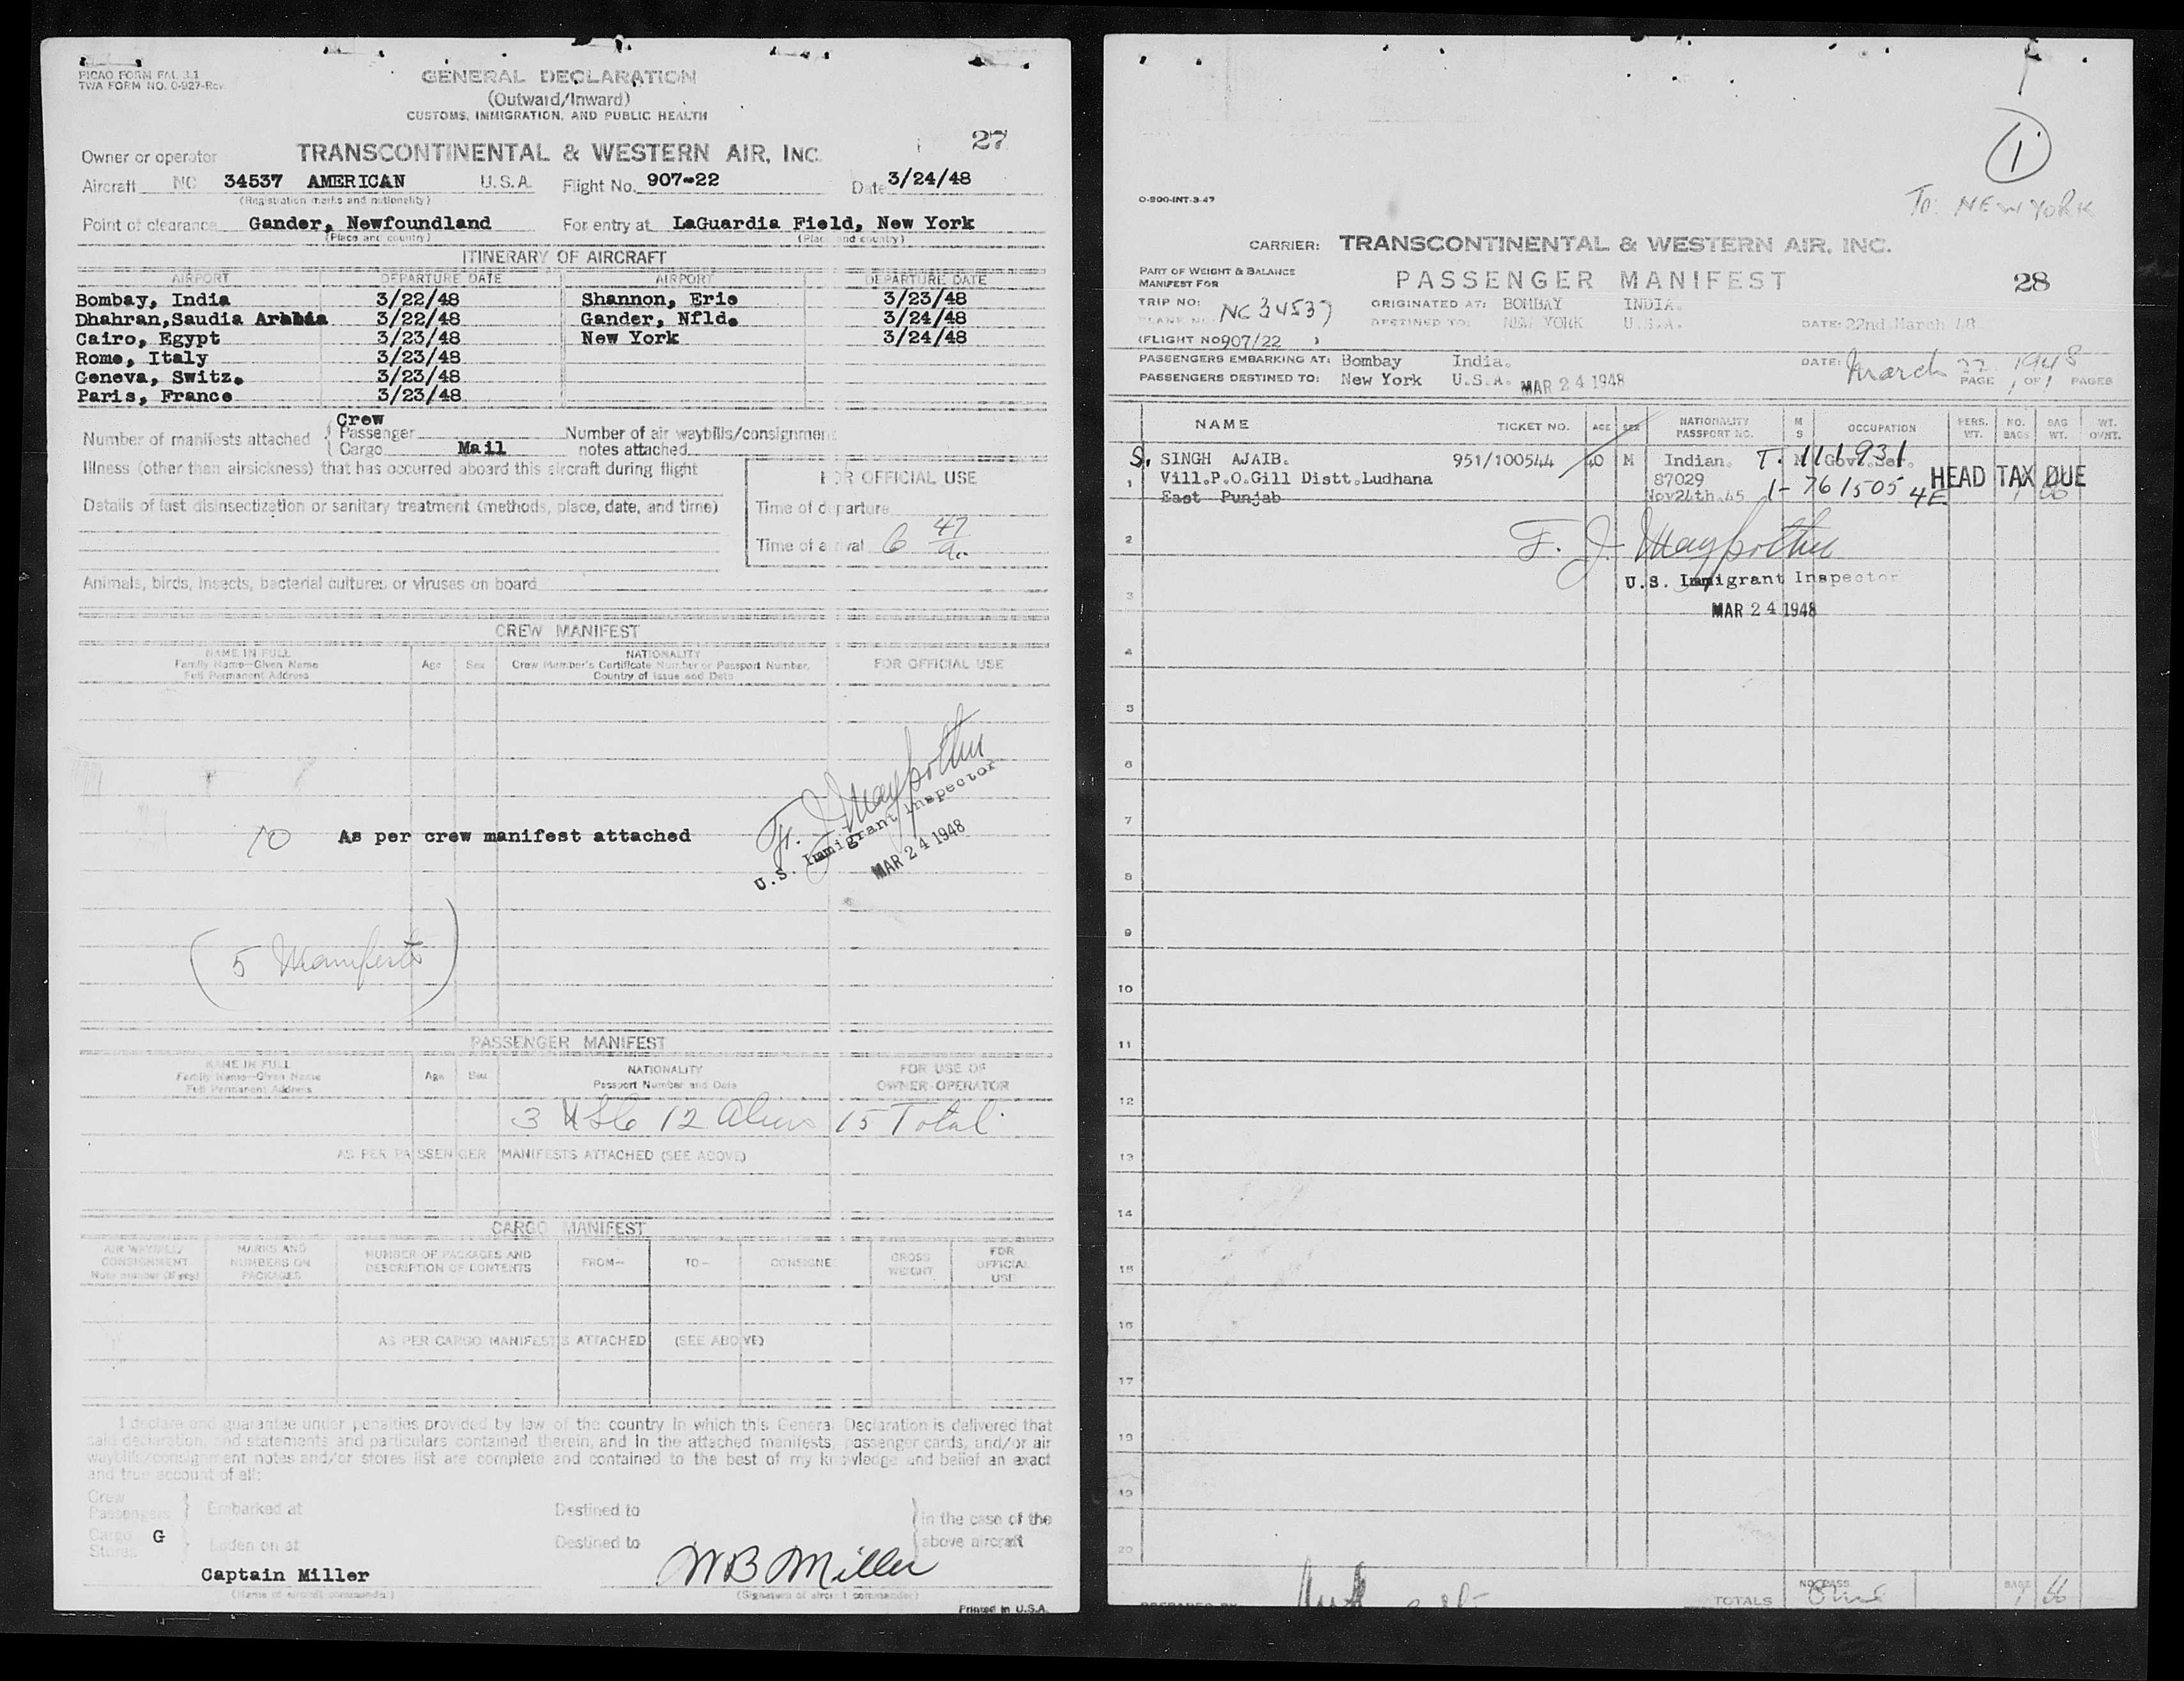 PICAO FORM FAL 3.1
TWA FORM NO. 0-927-Rev.
GENERAL DECLARATION
(Outward/Inward)
CUSTOMS, IMMIGRATION, AND PUBLIC HEALTH
27
Owner or operator TRANSCONTINENTAL & WESTERN AIR, INC.
Aircraft NC 34537 AMERICAN U.S.A. Flight No. 907-22 Date 3/24/48
(Registration marks and nationality)
Point of clearance Gander, Newfoundland For entry at LaGuardia Field, New York
(Place and country) (Place and country)
ITINERARY OF AIRCRAFT
AIRPORT DEPARTURE DATE AIRPORT DEPARTURE DATE
Bombay, India 3/22/48 Shannon, Erie 3/23/48
Dhahran,Saudia Arabia 3/22/48 Gander, Nfld. 3/24/48
Cairo, Egypt 3/23/48 New York 3/24/48
Rome, Italy 3/23/48
Geneva, Switz. 3/23/48
Paris, France 3/23/48
Crew
Number of manifests attached Passenger Number of air waybills/consignment
Cargo Mail notes attached
Illness (other than airsickness) that has occurred aboard this aircraft during flight
FOR OFFICIAL USE
Details of last disinsectization or sanitary treatment (methods, place, date, and time)
Time of departure
Time of arrival 6 47 a.
Animals, birds, insects, bacterial cultures or viruses on board
CREW MANIFEST
NAME IN FULL
Family Name—Given Name
Full Permanent Address
Age Sex
NATIONALITY
Crew Member's Certificate Number or Passport Number,
Country of Issue and Date
FOR OFFICIAL USE
10 As per crew manifest attached
U.S. Immigrant Inspector
MAR 24 1948
(5 Manifests)
PASSENGER MANIFEST
NAME IN FULL
Family Name—Given Name
Full Permanent Address
Age Sex
NATIONALITY
Passport Number and Date
FOR USE OF
OWNER-OPERATOR
3 12 Aliens 15 Total
AS PER PASSENGER MANIFESTS ATTACHED (SEE ABOVE)
CARGO MANIFEST
AIR WAYBILL/
CONSIGNMENT
Note number (if any)
MARKS AND
NUMBERS ON
PACKAGES
NUMBER OF PACKAGES AND
DESCRIPTION OF CONTENTS
FROM—
TO—
CONSIGNEE
GROSS
WEIGHT
FOR
OFFICIAL
USE
AS PER CARGO MANIFESTS ATTACHED (SEE ABOVE)
I declare and guarantee under penalties provided by law of the country in which this General Declaration is delivered that
said declaration, and statements and particulars contained therein, and in the attached manifests, passenger cards, and/or air
waybills/consignment notes and/or stores list are complete and contained to the best of my knowledge and belief an exact
and true account of all:
Crew
Passengers Embarked at Destined to in the case of the
Cargo G
Stores Laden on at Destined to above aircraft
Captain Miller W B Miller
(Name of aircraft commander) (Signature of aircraft commander)
Printed in U.S.A.
1
To: NEW YORK
O-900-INT-3-47
CARRIER: TRANSCONTINENTAL & WESTERN AIR, INC.
PART OF WEIGHT & BALANCE
MANIFEST FOR
PASSENGER MANIFEST
28
TRIP NO: ORIGINATED AT: BOMBAY INDIA.
PLANE NO: NC 34537 DESTINED TO: NEW YORK U.S.A. DATE: 22nd March 48
(FLIGHT NO 907/22 )
PASSENGERS EMBARKING AT: Bombay India. DATE: March 22 1948
PASSENGERS DESTINED TO: New York U.S.A. MAR 24 1948 PAGE 1 OF 1 PAGES
NAME TICKET NO. AGE SEX NATIONALITY PASSPORT NO. M S OCCUPATION PERS. WT. NO. BAGS BAG WT. WT. OVNT.
S. SINGH AJAIB. 951/100544 40 M Indian. T. 111931 M Govt.Ser.
1 Vill.P.O.Gill Distt.Ludhana 87029 HEAD TAX DUE
East Punjab Nov24th.45 1-761505 4E 1 66
2
U.S. Immigrant Inspector
3
MAR 24 1948
4
5
6
7
8
9
10
11
12
13
14
15
16
17
18
19
20
PREPARED BY TOTALS NO. PASS. One BAGS 1 66